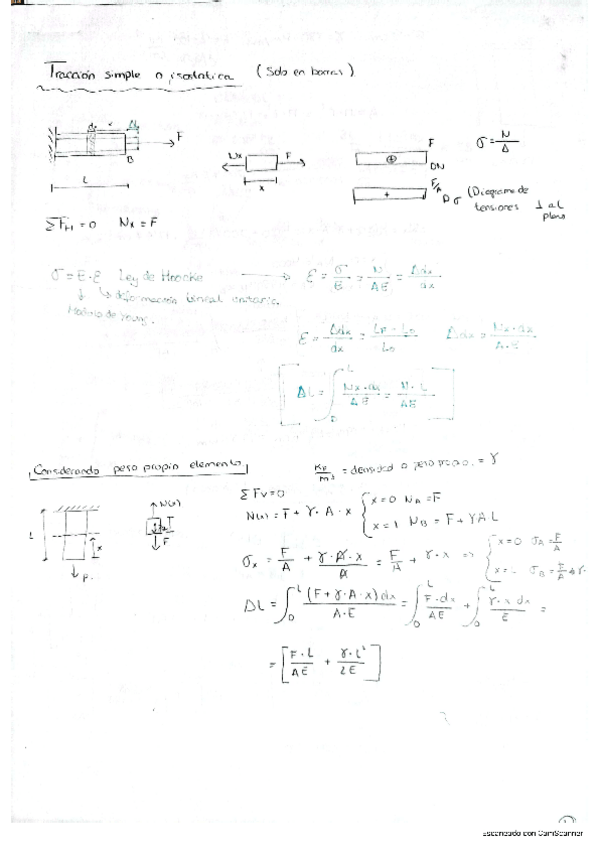 Tracción simple o isostática (Solo en barras)
dx ΔL
F
B
L
Nx F
x
F
DN
F/A
Dσ (Diagrama de tensiones ⊥ al plano
σ = N/A
ΣFH = 0 Nx = F
σ = E·ε Ley de Hoocke → ε = σ/E = N/AE = Δdx/dx
↳ deformación lineal unitaria.
Modulo de Young.
ε = Δdx/dx = LF - L0/L0 Δdx = Nx·dx/A·E
ΔL = ∫0^L Nx·dx/AE = N·L/AE
Considerando peso propio elemento
= densidad o peso propio. = γ
ΣFv=0
N(x) = F + γ·A·x { x=0 NA=F
x=L NB = F + γAL
N(x)
F
L
x
P.
σx = F/A + γ·A·x/A = F/A + γ·x => { x=0 σA = F/A
ΔL = ∫0^L (F+γ·A·x)dx/A·E = ∫0^L F·dx/AE + ∫0^L γ·x dx/E =
= [F·L/AE + γ·L²/2E]
Escaneado con CamScanner